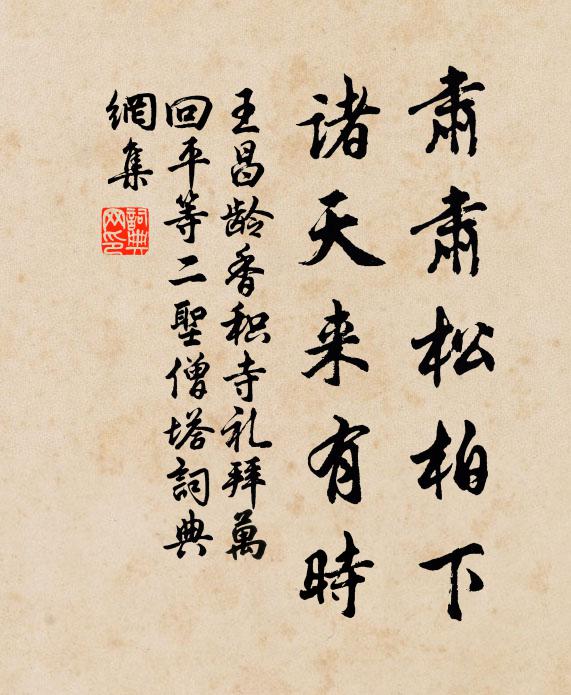 肃肃松柏下
诸天来有时
王昌龄香积寺礼拜萬
回平等二聖僧塔詞典
網集
詞典网印